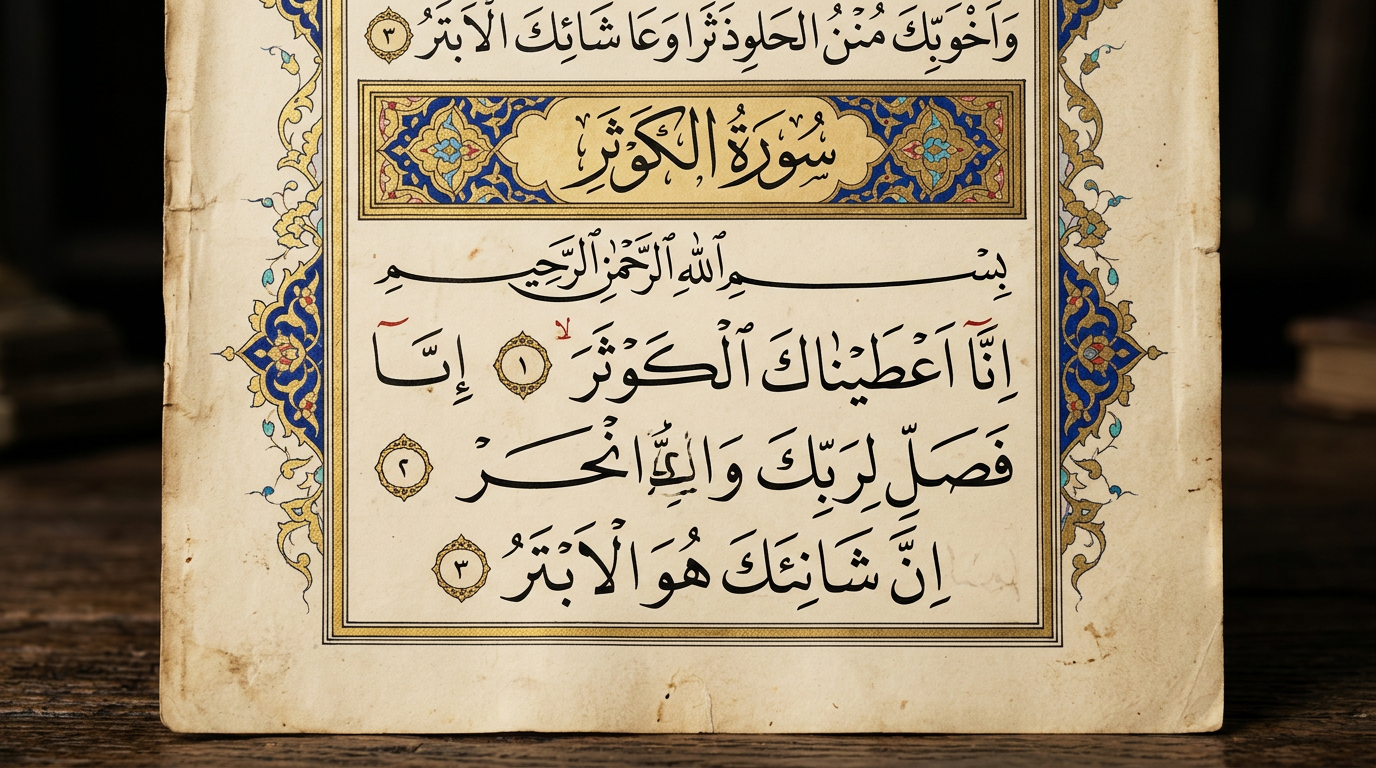 وَاَخْوَبِّكَ مُنْنُ الحَلوذَثَرَا وَعَا شَائِكَ الْاَبتَرُ ٣
سُورَةُ الكَوْثَرِ
بِسْمِ ٱللّٰهِ ٱلرَّحْمٰنِ ٱلرَّحِيمِ
اِنَّآ اَعْطَيْنٰاكَ ٱلْكَوْثَرَ ۙ ١ إِنَّآ
فَصَلِّ لِرَبِّكَ وَ انْحَرْ ٢
اِنَّ شَانِئَكَ هُوَ الْاَبْتَرُ ٣